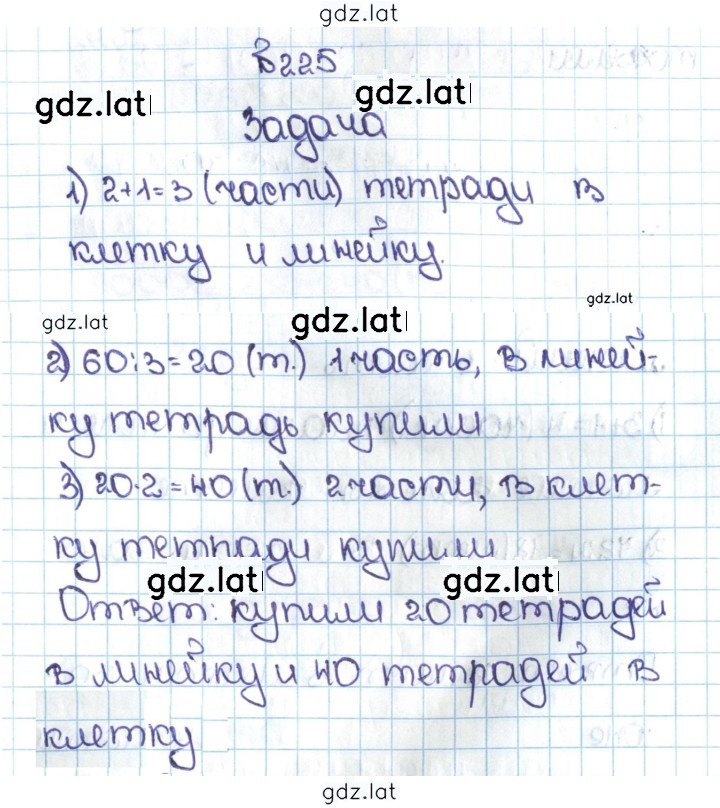 gdz.lat
В 225
gdz.lat gdz.lat
Задача
1) 2+1=3 (части) тетради в
клетку и линейку.
gdz.lat
gdz.lat gdz.lat
2) 60:3=20 (т.) 1 часть, в линей-
ку тетрадь купили
3) 20·2=40 (т.) 2 части, в клет-
ку тетради купили
gdz.lat gdz.lat
Ответ: купили 20 тетрадей
в линейку и 40 тетрадей в
клетку
gdz.lat